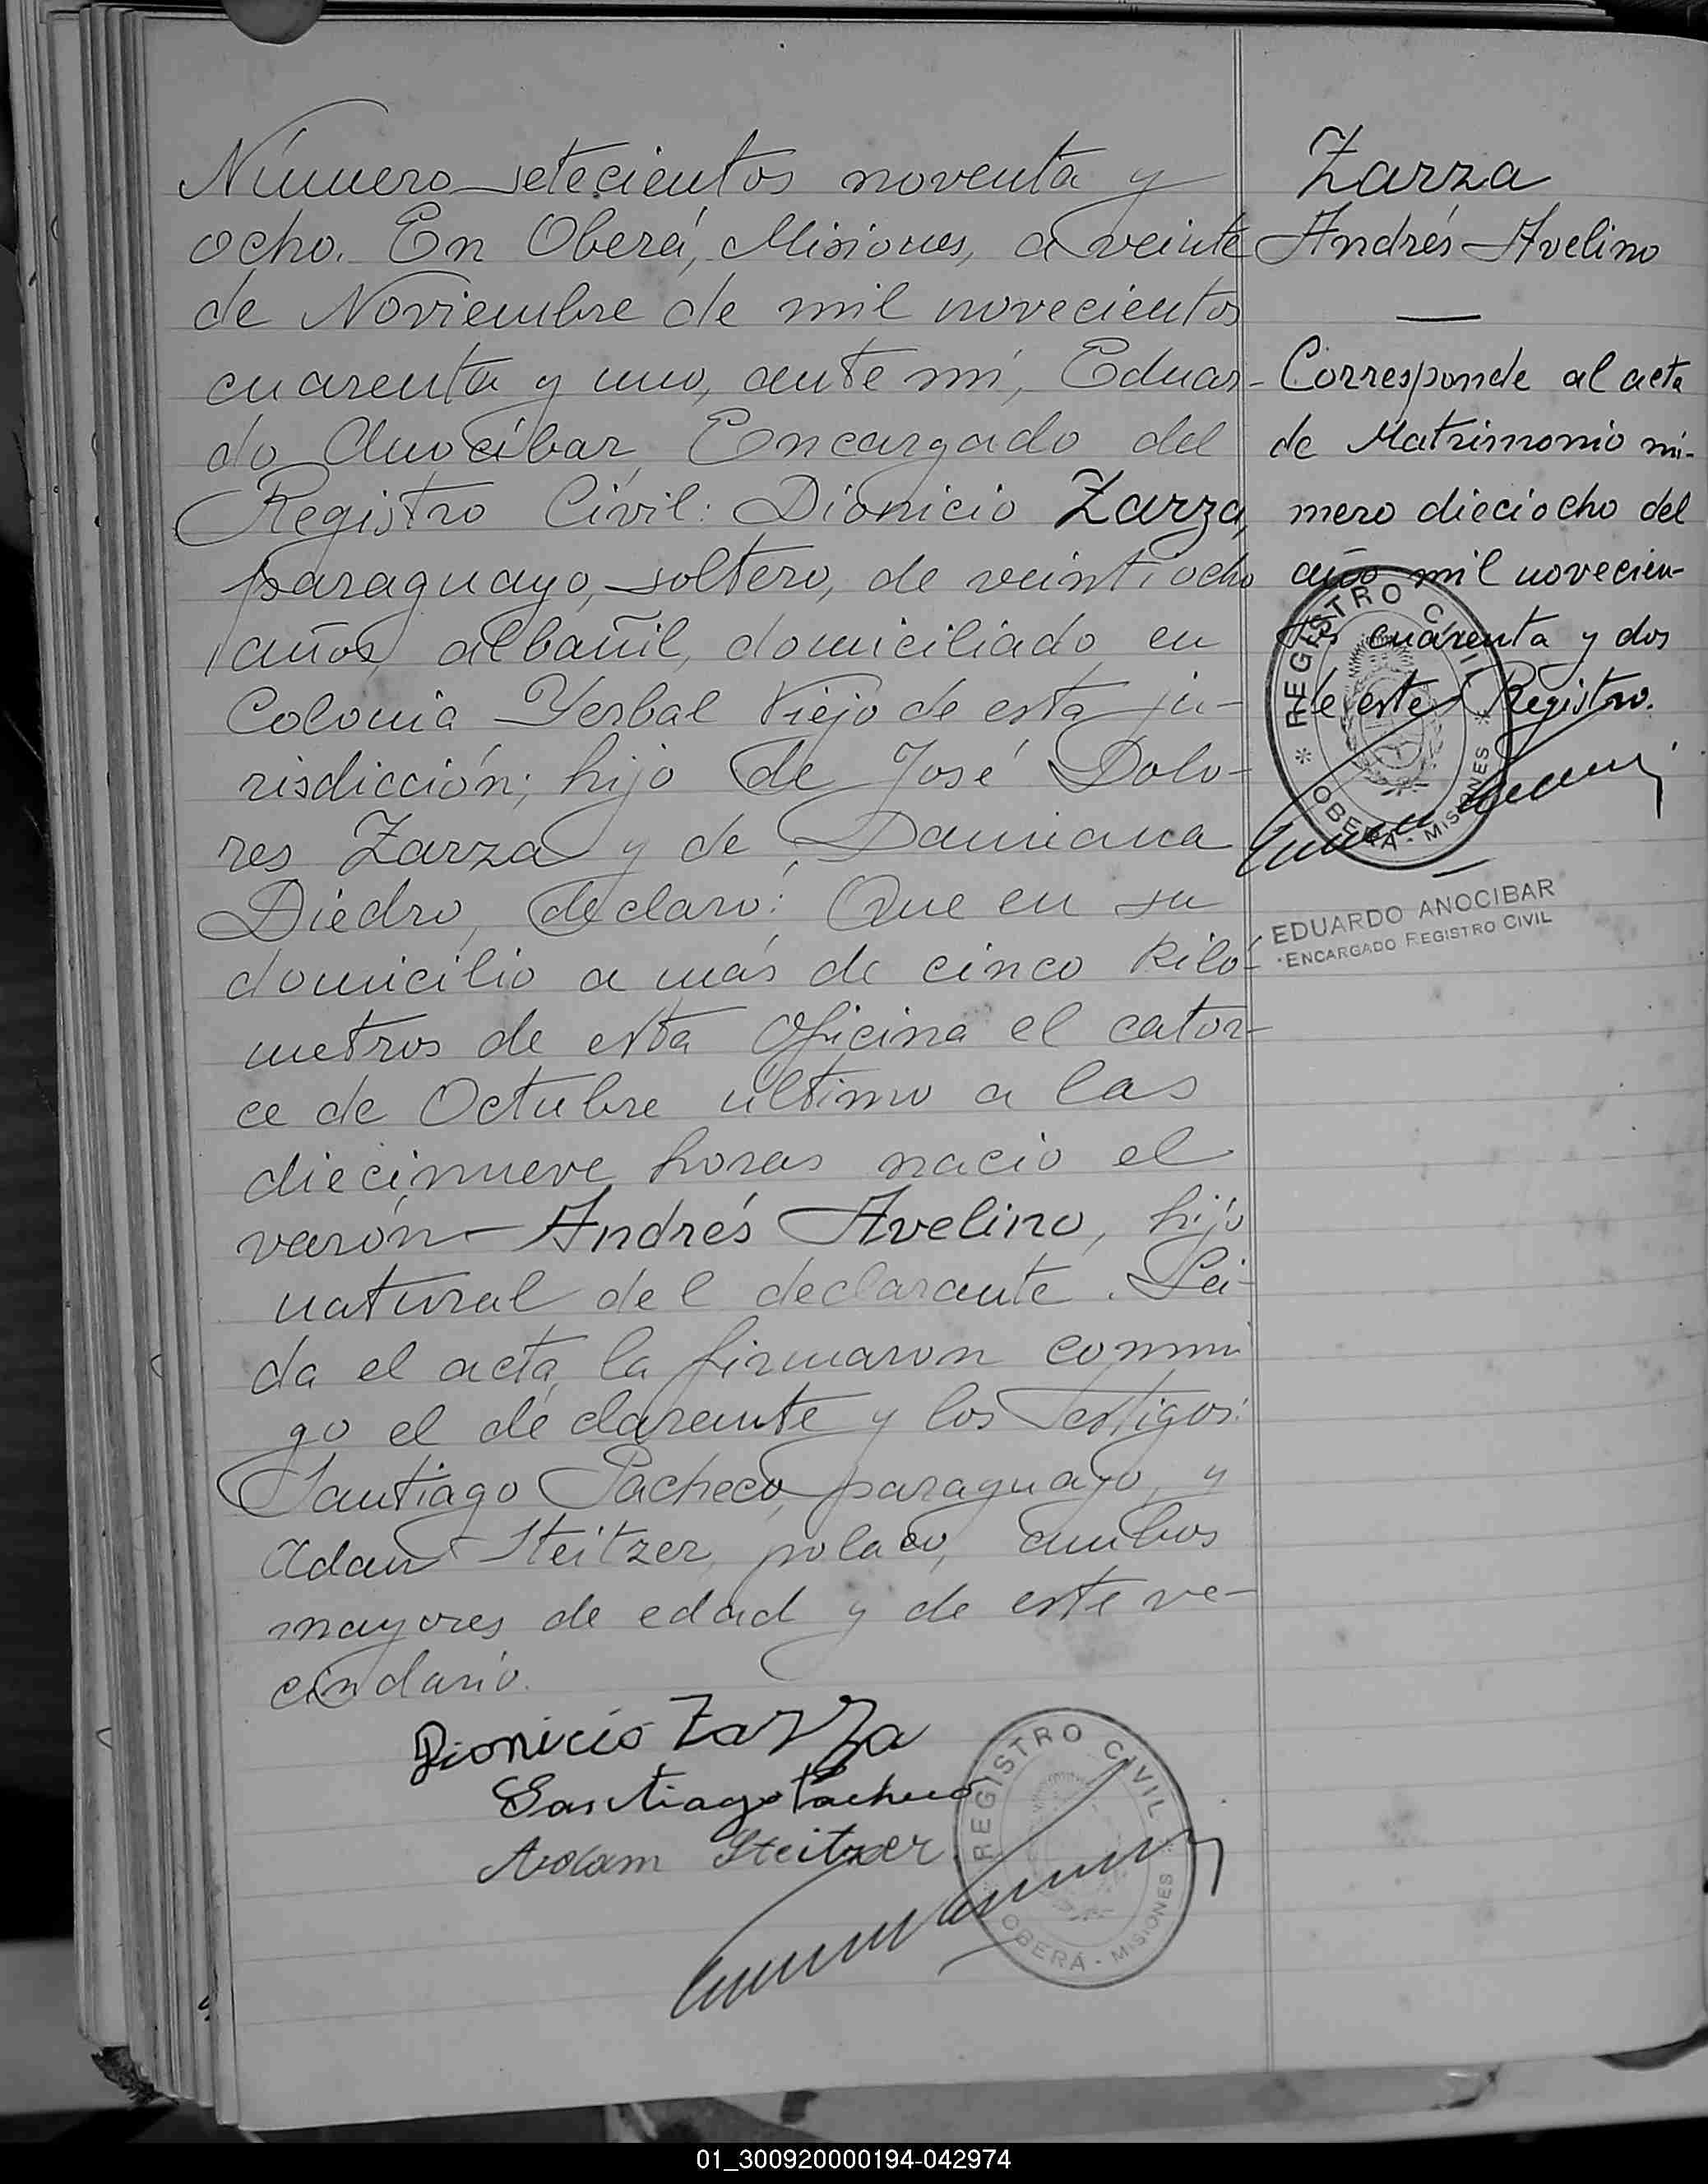 Número setecientos noventa y
ocho. En Oberá, Misiones, a veinte
de Noviembre de mil novecientos
cuarenta y uno, ante mí, Eduar-
do Anocíbar, Encargado del
Registro Civil: Dionicio Zarza,
paraguayo, soltero, de veintiocho
años, albañil, domiciliado en
Colonia Yerbal Viejo de esta ju-
risdicción; hijo de José Dolo-
res Zarza y de Damiana
Diedro, declaró: Que en su
domicilio a más de cinco kiló-
metros de esta Oficina el cator-
ce de Octubre último a las
diecinueve horas nació el
varón Andrés Avelino, hijo
natural del declarante. Leí-
da el acta la firmaron conmi
go el declarante y los testigos:
Santiago Pacheco, paraguayo, y
Adam Steitzer, polaco, ambos
mayores de edad y de este ve-
cindario.
Dionicio Zarza
Santiago Pacheco
Adam Steitzer
REGISTRO CIVIL
OBERÁ - MISIONES
Zarza
Andrés Avelino
Corresponde al acta
de Matrimonio nú-
mero dieciocho del
año mil novecien-
tos cuarenta y dos
de este Registro.
REGISTRO CIVIL
OBERÁ - MISIONES
EDUARDO ANOCIBAR
ENCARGADO REGISTRO CIVIL
01_300920000194-042974